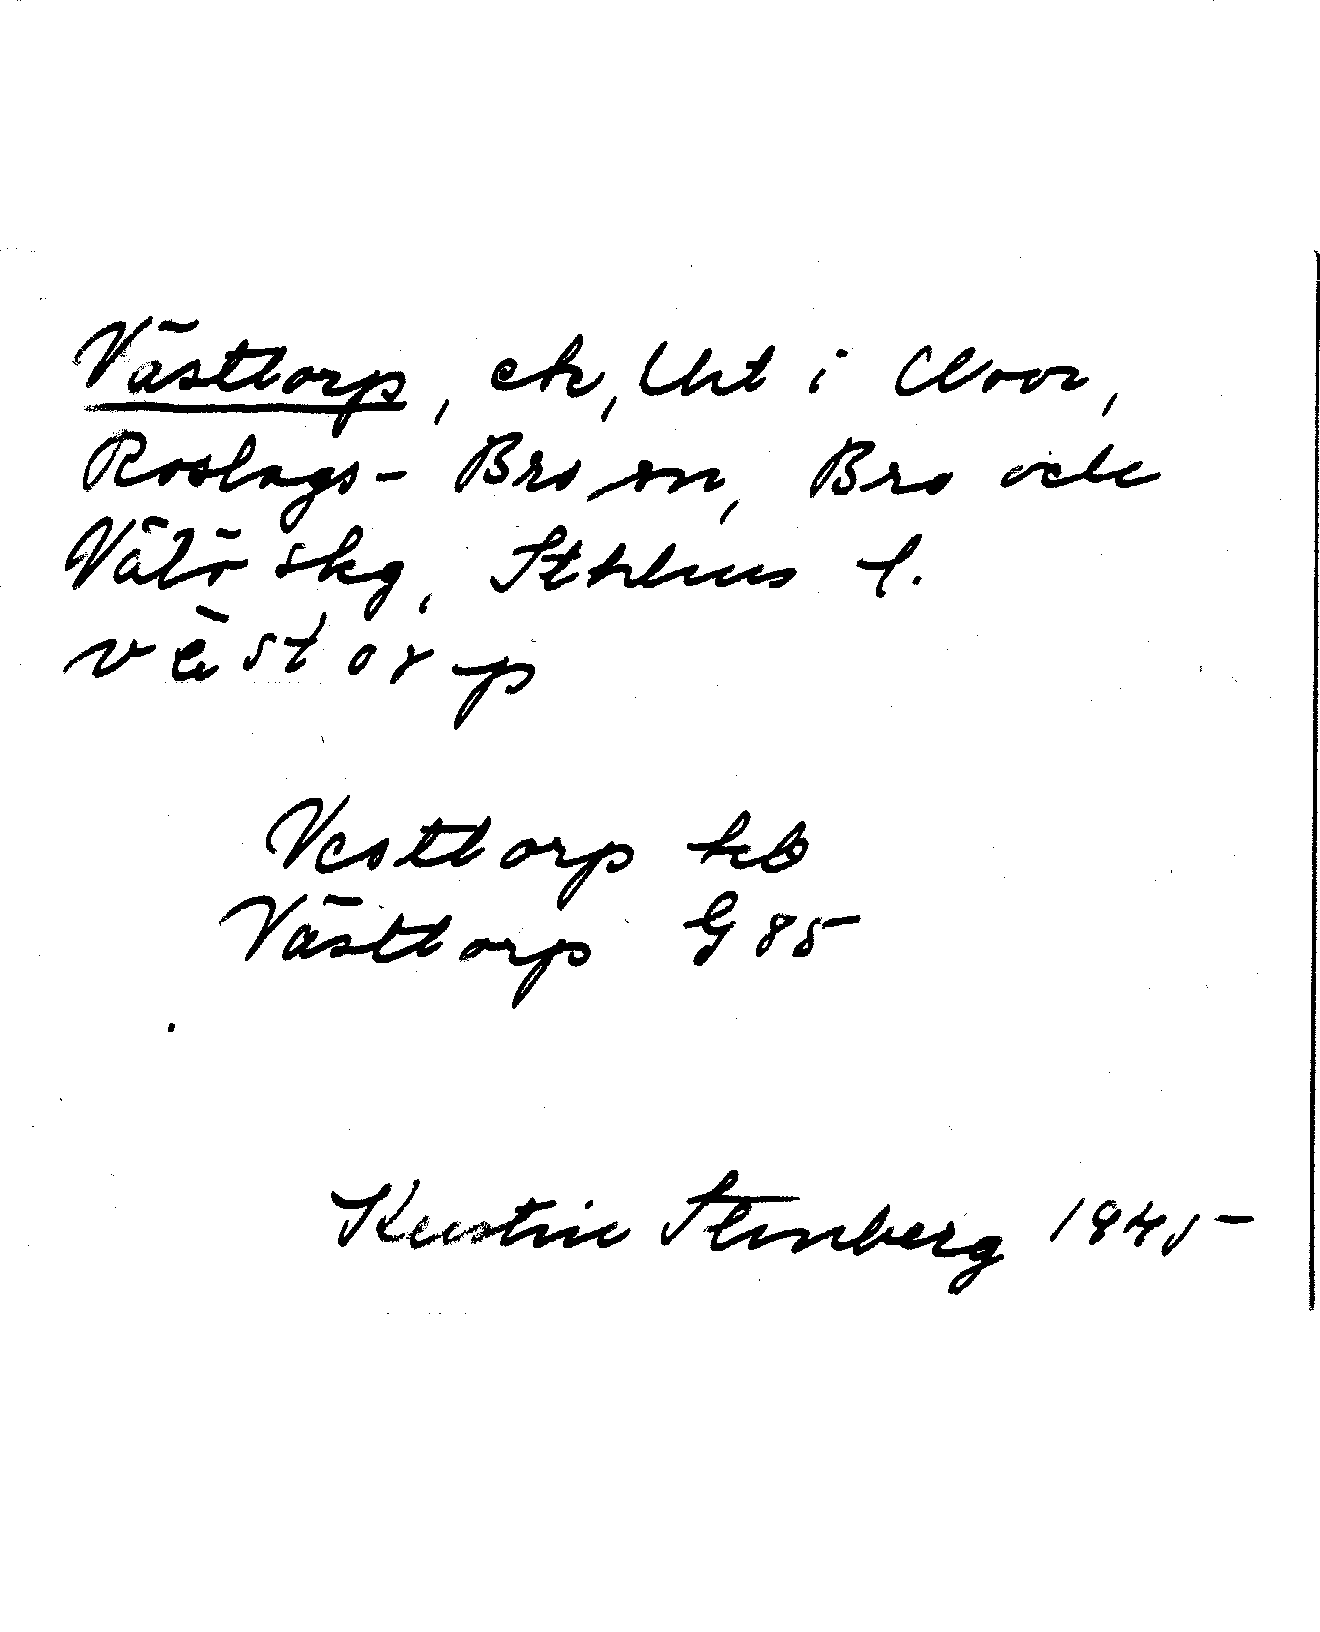 Västtorp, ek, Uht i Noor,
Roslags-Bro sn, Bro och
Vätö skg, Sthlms l.
västorp
Vesttorp kb
Västtorp G 85
Kerstin Stenberg 1945